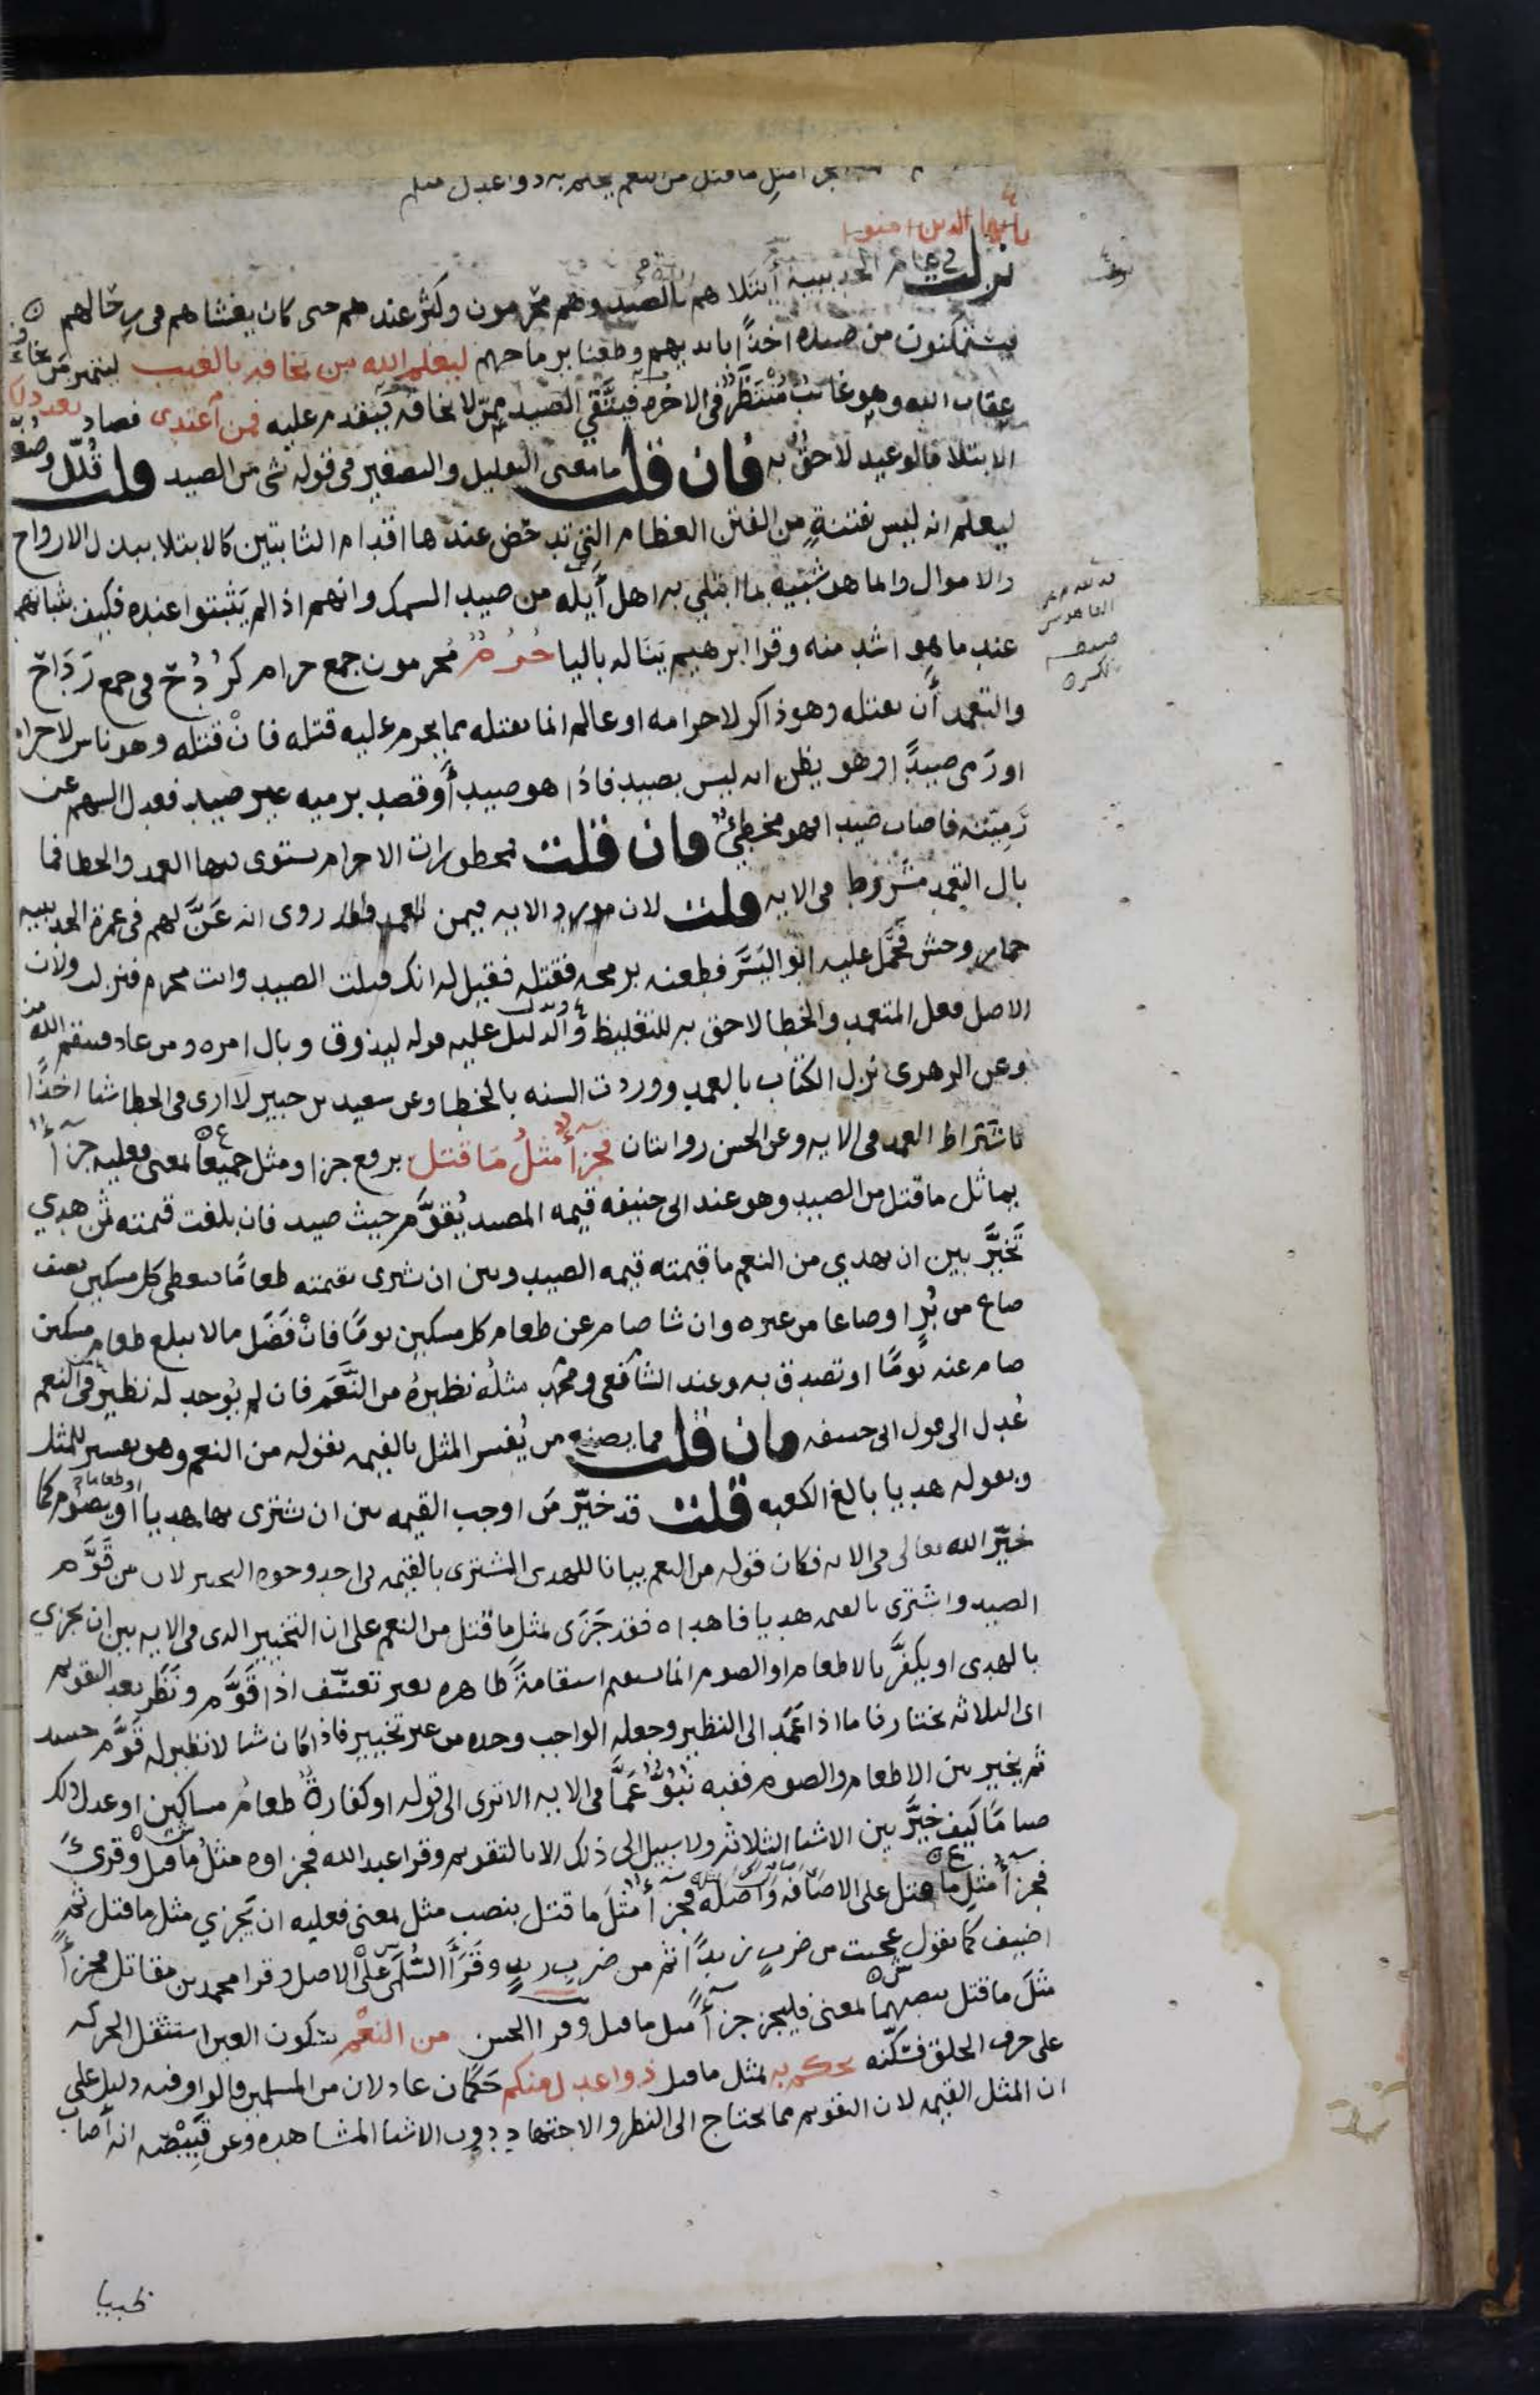 مثل ما قتل من النعم يحكم به ذوا عدل منكم
يا أيها الذين امنوا
نزلت في عام الحديبية أبتلاهم بالصيد وهم محرمون وكثر عندهم حتى كان يغشاهم في رحالهم
فيستمكنون من صيده اخذًا بايديهم وطعنا برماحهم ليعلم الله من يخافه بالغيب ليتميز من يخاف
عقاب الله وهو غائب مُنْتَظَرٌ في الاخره فيتَّقي الصيد ممن لا يخافه فيقدم عليه فمن اعتدى فصاد بعد ذلك
الابتلا فالوعيد لاحق به فان قلت ما معنى التقليل والتصغير في قوله شي من الصيد قلت قُلّل وصُغّر
ليعلم انه ليس بفتنةٍ من الفتن العظام التي تدحض عندها اقدام الثابتين كالابتلا ببذل الارواح
والاموال وانما هو شبيه بما ابتلي به اهل أَيلَه من صيد السمك وانهم اذا لم يَثبتوا عنده فكيف شانهم
عند ما هو اشد منه وقرا ابرهيم يَنَاله باليا حُرُمٌ محرمون جمع حرام كرُدُح في جمع رَدَاح
والتعمد أَن يقتله وهو ذاكر لاحرامه او عالم انما يقتله مما يحرم عليه قتله فانْ قتله وهو ناس لاحرامه
او رَمى صيدًا وهو يظن انه ليس بصيد فاذا هو صيد أَو قصد برميه غير صيد فعدل السهم عن
رَمِيّته فاصاب صيدا فهو مخطئٌ فان قلت فمحظورات الاحرام يستوي فيها العمد والخطا فما
بال التعمد مشروط في الايه قلت لان مورد الايه فيمن تعمد فقد روى انه عَنَّ لهم في عمرة الحديبيه
حمار وحش فحَمَل عليه ابُو اليَسَر فطعنه برمحه فقتله فقيل له انك قتلت الصيد وانت محرم فنزلت ولان
الاصل فعل المتعمد والخطا لاحق به للتغليظ والدليل عليه قوله ليذوق وبال امره ومن عاد فينتقم الله منه
وعن الزهري نزل الكتاب بالعمد ووردت السنه بالخطا وعن سعيد بن جبير لا ارى في الخطا شيا اخذًا
باشتراط العمد في الايه وعن الحسن روايتان فجزآءٌ مثلُ مَا قتل برفع جزا ومثل جميعاً بمعنى فعليه جزآءٌ
يماثل ما قتل من الصيد وهو عند ابي حنيفه قيمه المصيد يُقوَّم حيث صيد فان بلغت قيمته ثمن هدي
تَخَيَّرَ بين ان يهدي من النعم ما قيمته قيمه الصيد وبين ان يشري بقيمته طعامًا فيعطى كل مسكين نصف
صاع من بُرّ او صاعا من غيره وان شا صام عن طعام كل مسكين يومًا فانْ فَضَل مالا يبلغ طعام مسكين
صام عنه يَومًا او تصدق به وعند الشافعي ومحمد مثلُه نظيرهُ من النَّعَم فان لم يُوجد له نظير في النعم
عُدل الى قول ابي حنيفه فان قلت فما يصنع من يُفسر المثل بالقيمه بقوله من النعم وهو تفسير للمثل
وبقوله هديا بالغ الكعبه قلت قد خيّر مَن اوجب القيمه بين ان يشتري بها هديا او طعاما او يصوم كما
خيّر الله تعالى في الايه فكان قوله من النعم بيانا للهدى المشترى بالقيمه في احد وجوه التخيير لان من قَوَّم
الصيد واشترى بالقيمه هديا فاهداه فقد جَزَى بمثل ما قتل من النعم على ان التخيير الذي في الايه بين ان يجزي
بالهدى او يكفّرَ بالاطعام او الصوم انما يستقيم استقامةً ظاهره بغير تعسّف اذا قَوَّم ونَظَر بعد التقويم
اي الثلاثه يختار فاما اذا عَمَد الى النظير وجعله الواجب وحده من غير تخيير فاذا كان شيا لا نظير له قَوَّم حينئذ
ثم يخير بين الاطعام والصوم ففيه نُبُوٌّ عَمَّا في الايه الا ترى الى قوله او كفارةٌ طعامُ مساكين او عدل ذلك
صيامًا كيف خَيَّر بين الاشيا الثلاثه ولا سبيل الى ذلك الا بالتقويم وقرا عبد الله فجزاوه مثلُ ما قتل وقُرئَ
فجزآءُ مثلِ ما قتل على الاضَافَه وَاصلُه فجزآءٌ مثلَ ما قتل بنصب مثل بمعنى فعليه ان يَجزي مثل ما قتل ثم
اضيف كما تقول عجبت من ضربٍ زيدًا ثم من ضربِ زيدٍ وقَرَأ السُّلَمي على الاصل وقرا محمد بن مقاتل فجزآءً
مثلَ ما قتل بنصبهما بمعنى فليجز جزآءً مثل ما قتل وقرا الحسن من النعْم بسكون العين استثقل الحركه
على حرف الحلق فسكّنه يحكم به بمثل ما قتل ذوا عدل منكم حَكَمان عادلان من المسلمين قالوا وفيه دليل على
ان المثل القيمه لان التقويم مما يحتاج الى النظر والاجتهاد دون الاشيا المشاهده وعن قَبِيْصَه انه أَصاب
ظبيا